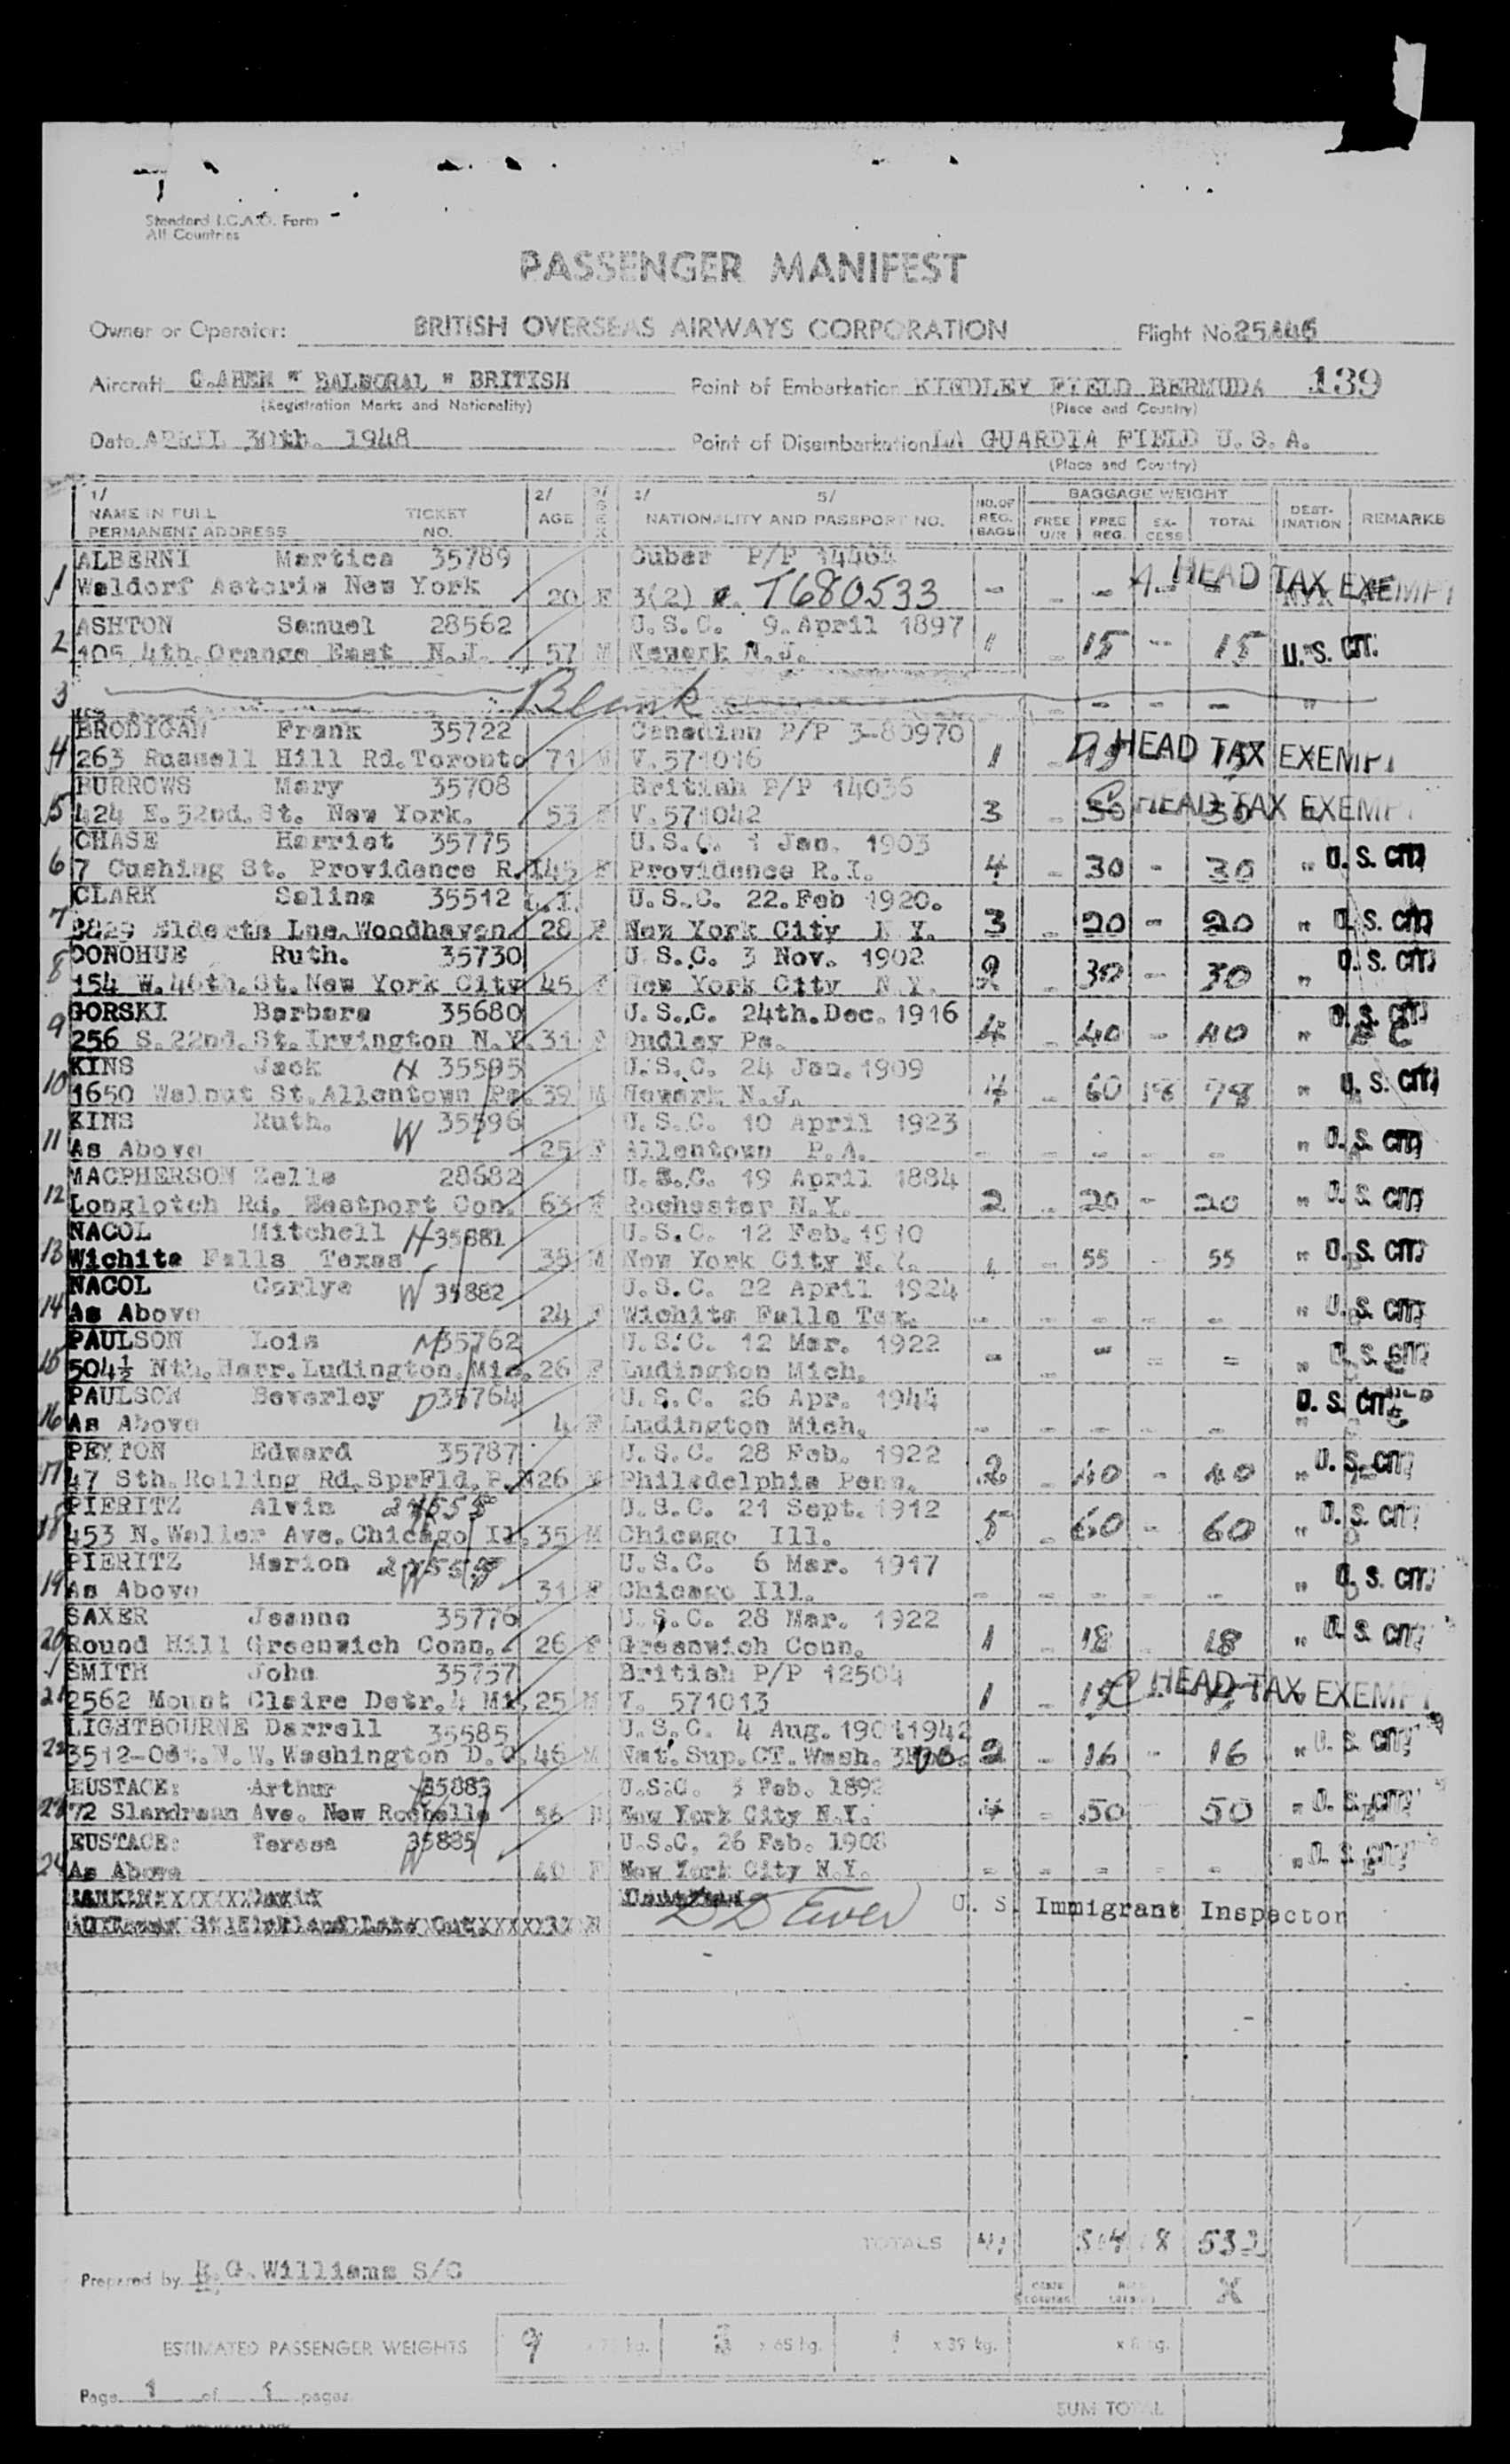 Standard I.C.A.O. Form
All Countries
PASSENGER MANIFEST
Owner or Operator: BRITISH OVERSEAS AIRWAYS CORPORATION Flight No.
Aircraft G.AHEM " BALMORAL " BRITISH Point of Embarkation KINDLEY FIELD BERMUDA 139
(Registration Marks and Nationality) (Place and Country)
Date APRIL 30th. 1948 Point of Disembarkation LA GUARDIA FIELD U.S.A.
(Place and Country)
1/ 2/ 3/ 4/ 5/ NO. OF BAGGAGE WEIGHT
NAME IN FULL TICKET AGE SEX NATIONALITY AND PASSPORT NO. REG. FREE FREE EX- TOTAL DEST- REMARKS
PERMANENT ADDRESS NO. BAGS U/R REG. CESS INATION
ALBERNI Martica 35789 Cuban P/P
1 Waldorf Astoria New York 20 F 3(2) T680533 - - - HEAD TAX EXEMPT
ASHTON Samuel 28562 U.S.C. 9. April 1897
2 105 4th. Orange East N.J. 57 M Newark N.J. 1 - 15 - 15 U.S. CIT.
3 Blank - - - - "
BRODIGAN Frank 35722 Canadian P/P 3-80970
4 263 Russell Hill Rd. Toronto 71 M V.571016 1 - D HEAD TAX EXEMPT
BURROWS Mary 35708 British P/P 14036
5 424 E. 52nd. St. New York. 53 F V.571042 3 - 30 C HEAD TAX EXEMPT
CHASE Harriet 35775 U.S.C. 1 Jan. 1903
6 7 Cushing St. Providence R.I 45 F Providence R.I. 4 - 30 - 30 " U.S. CIT.
CLARK Selina 35512 L.I. U.S.C. 22. Feb 1920.
7 8829 Elderts Lne. Woodhaven 28 F New York City N.Y. 3 - 20 - 20 " U.S. CIT.
DONOHUE Ruth. 35730 U.S.C. 3 Nov. 1902
8 154 W. 46th. St. New York City 45 F New York City N.Y. 2 - 30 - 30 " U.S. CIT.
GORSKI Barbara 35680 U.S.C. 24th. Dec. 1916
9 256 S. 22nd. St. Irvington N.Y. 31 F Dudley Pa. 4 - 40 - 40 " U.S. CIT.
KINS Jack H 35595 U.S.C. 24 Jan. 1909
10 1650 Walnut St. Allentown Pa. 39 M Newark N.J. 4 - 60 18 78 " U.S. CIT.
KINS Ruth. W 35596 U.S.C. 10 April 1923
11 As Above 25 F Allentown P.A. - - - - - " U.S. CIT.
MACPHERSON Zella 28682 U.S.C. 19 April 1884
12 Longlotch Rd. Westport Con. 63 F Rochester N.Y. 2 - 20 - 20 " U.S. CIT.
NACOL Mitchell H 35881 U.S.C. 12 Feb. 1910
13 Wichita Falls Texas 38 M New York City N.Y. - 55 - 55 " U.S. CIT.
NACOL Corlye W 35882 U.S.C. 22 April 1924
14 As Above 24 F Wichita Falls Tex. - - - - - " U.S. CIT.
PAULSON Lois M 35762 U.S.C. 12 Mar. 1922
15 504½ Nth. Harr. Ludington. Mic. 26 F Ludington Mich. - - - - - " U.S. CIT.
PAULSON Beverley D 35764 U.S.C. 26 Apr. 1944
16 As Above 4 F Ludington Mich. - - - - - " U.S. CIT.
PEYTON Edward 35787 U.S.C. 28 Feb. 1922
17 47 Sth. Rolling Rd. SprFld. P.A 26 M Philadelphia Penn. 2 - 40 - 40 " U.S. CIT.
PIERITZ Alvin U.S.C. 21 Sept. 1912
18 453 N. Waller Ave. Chicago Il. 35 M Chicago Ill. 5 - 60 - 60 " U.S. CIT.
PIERITZ Marion W U.S.C. 6 Mar. 1917
19 As Above 31 F Chicago Ill. - - - - - " U.S. CIT.
SAXER Jeanne 35776 U.S.C. 28 Mar. 1922
20 Round Hill Greenwich Conn. 26 F Greenwich Conn. 1 - 18 - 18 " U.S. CIT.
SMITH John 35757 British P/P 12504
21 2562 Mount Claire Detr. 4 Mi. 25 M V. 571013 1 - 15 C HEAD TAX EXEMPT
LIGHTBOURNE Darrell 35585 U.S.C. 4 Aug. 1901 1942
22 3512-Oct. N.W. Washington D.C. 46 M Nat. Sup. CT. Wash. 2 - 16 - 16 " U.S. CIT.
EUSTACE: Arthur 35883 U.S.C. 3 Feb. 1892
23 72 Slandrean Ave. New Rochelle 56 M New York City N.Y. 4 - 50 50 " U.S. CIT.
EUSTACE: Teresa W 35885 U.S.C. 26 Feb. 1908
24 As Above 40 F New York City N.Y. - - - - - " U.S. CIT.
U. S. Immigrant Inspector
TOTALS 41 514 18 532
Prepared by R.G. Williams S/C
X
ESTIMATED PASSENGER WEIGHTS 9 kg. x 65 kg. x 39 kg. kg.
Page 1 of 1 pages
SUM TOTAL